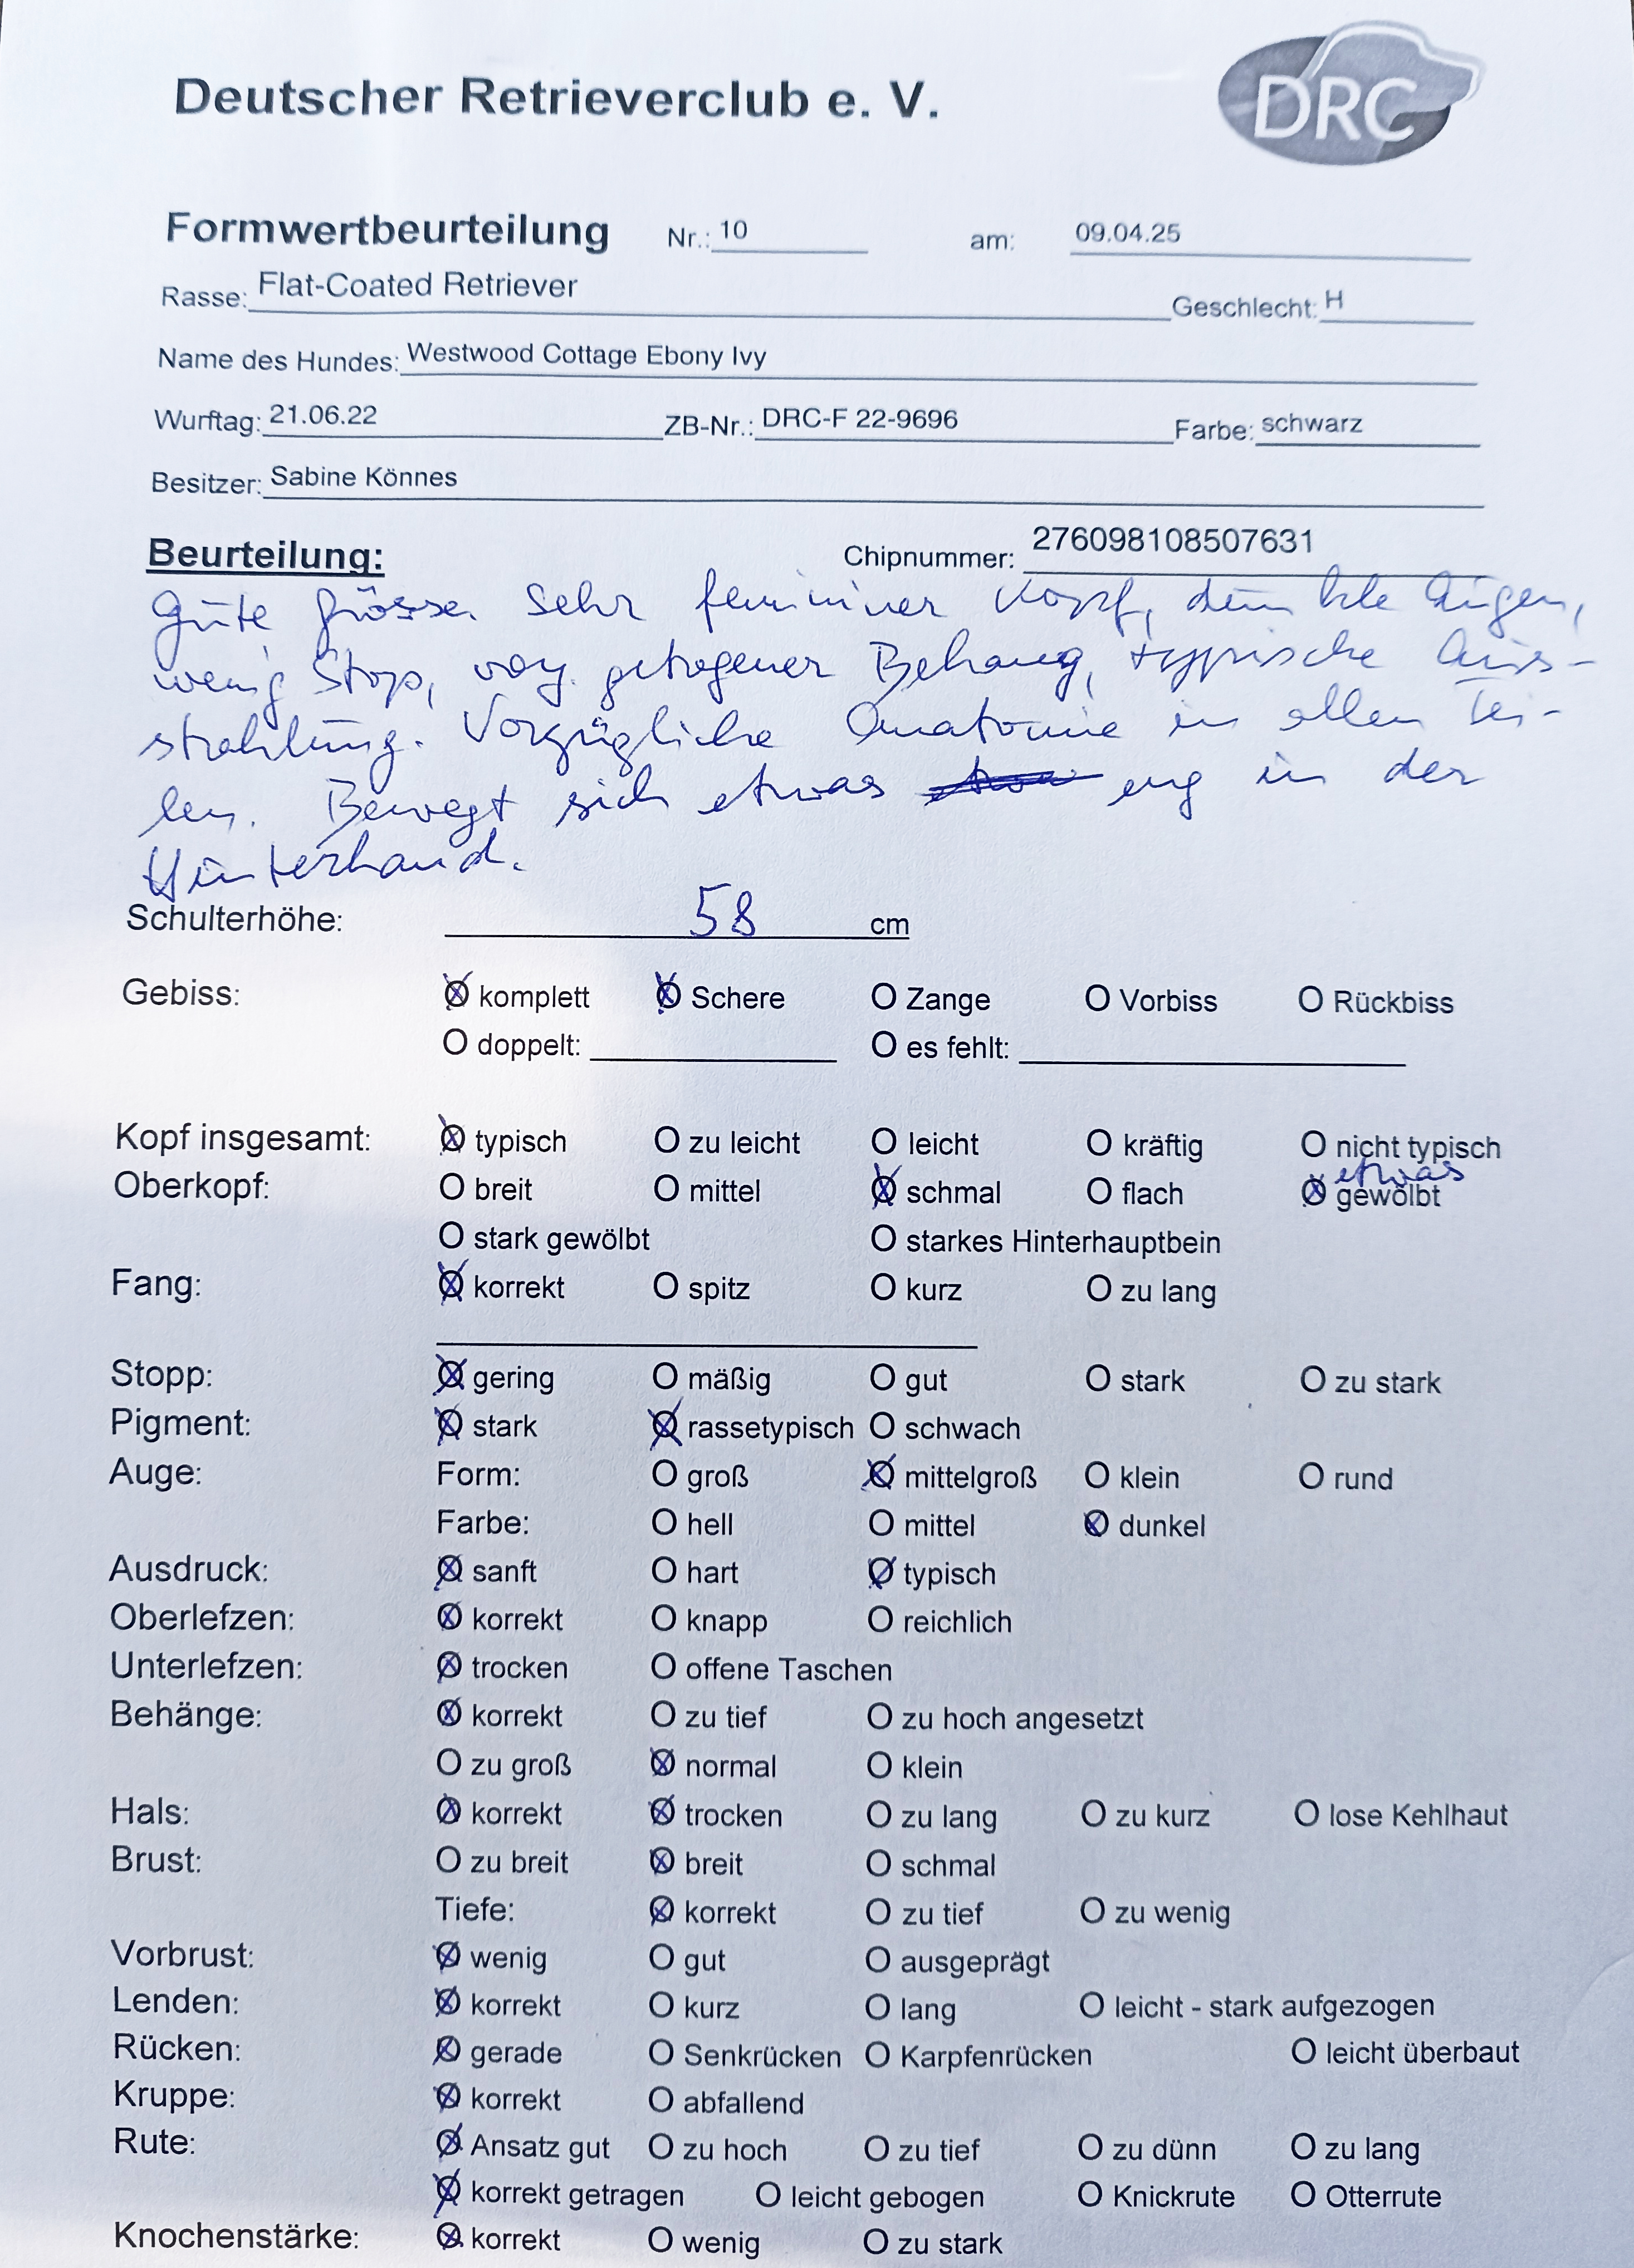 Deutscher Retrieverclub e. V.
DRC
Formwertbeurteilung Nr.: 10 am: 09.04.25
Rasse: Flat-Coated Retriever Geschlecht: H
Name des Hundes: Westwood Cottage Ebony Ivy
Wurftag: 21.06.22 ZB-Nr.: DRC-F 22-9696 Farbe: schwarz
Besitzer: Sabine Könnes
Beurteilung: Chipnummer: 276098108507631
Gute Grösse. Sehr femininer Kopf, dunkle Augen,
wenig Stop, vorz. getragener Behang, typische Aus-
strahlung. Vorzügliche Anatomie in allen Tei-
len. Bewegt sich etwas eng in der
Hinterhand.
Schulterhöhe: 58 cm
Gebiss: komplett Schere O Zange O Vorbiss O Rückbiss
O doppelt: O es fehlt:
Kopf insgesamt: typisch O zu leicht O leicht O kräftig O nicht typisch
etwas
Oberkopf: O breit O mittel schmal O flach gewölbt
O stark gewölbt O starkes Hinterhauptbein
Fang: korrekt O spitz O kurz O zu lang
Stopp: gering O mäßig O gut O stark O zu stark
Pigment: stark rassetypisch O schwach
Auge: Form: O groß mittelgroß O klein O rund
Farbe: O hell O mittel dunkel
Ausdruck: sanft O hart typisch
Oberlefzen: korrekt O knapp O reichlich
Unterlefzen: trocken O offene Taschen
Behänge: korrekt O zu tief O zu hoch angesetzt
O zu groß normal O klein
Hals: korrekt trocken O zu lang O zu kurz O lose Kehlhaut
Brust: O zu breit breit O schmal
Tiefe: korrekt O zu tief O zu wenig
Vorbrust: wenig O gut O ausgeprägt
Lenden: korrekt O kurz O lang O leicht - stark aufgezogen
Rücken: gerade O Senkrücken O Karpfenrücken O leicht überbaut
Kruppe: korrekt O abfallend
Rute: Ansatz gut O zu hoch O zu tief O zu dünn O zu lang
korrekt getragen O leicht gebogen O Knickrute O Otterrute
Knochenstärke: korrekt O wenig O zu stark